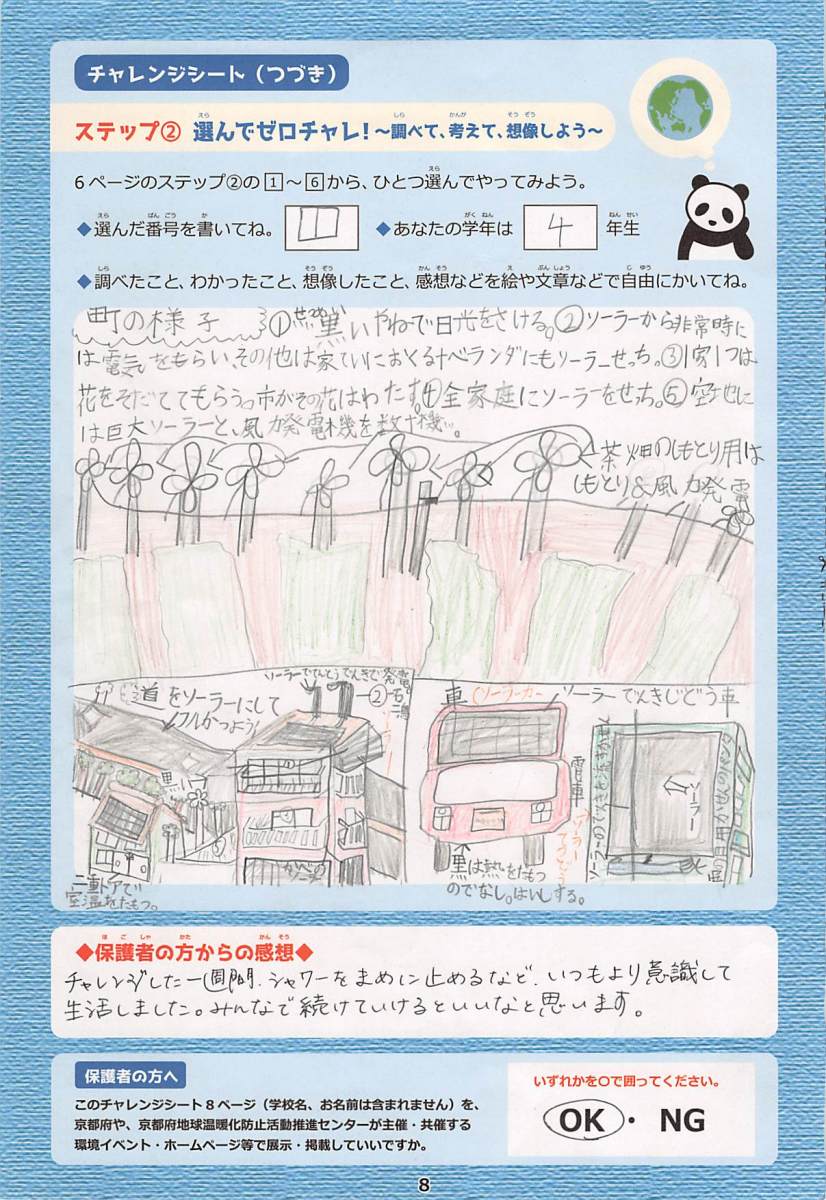 チャレンジシート（つづき）
ステップ② 選んでゼロチャレ！～調べて、考えて、想像しよう～
6ページのステップ②の1～6から、ひとつ選んでやってみよう。
◆選んだ番号を書いてね。 ◆あなたの学年は 4 年生
◆調べたこと、わかったこと、想像したこと、感想などを絵や文章などで自由にかいてね。
町の様子 ①黒いやねで日光をさける。②ソーラーから非常時に
は電気をもらい、その他は家ていにおくる+ベランダにもソーラーせっち。③1家1つは
花をそだててもらう。市がその花はわたす。④全家庭にソーラーをせっち。⑤空地に
は巨大ソーラーと、風力発電機を数十機。
茶畑のしもとり用は
しもとり&風力発電
ソーラーででんとうでんきで発電
道をソーラーにして
フルかつよう!
黒い
二重ドアで
室温をたもつ。
車 ソーラーカー
ソーラーでんきじどう車
電車
黒は熱をたもつ
のでなし。はいしする。
◆保護者の方からの感想◆
チャレンジした一週間、シャワーをまめに止めるなど、いつもより意識して
生活しました。みんなで続けていけるといいなと思います。
保護者の方へ
このチャレンジシート8ページ（学校名、お名前は含まれません）を、
京都府や、京都府地球温暖化防止活動推進センターが主催・共催する
環境イベント・ホームページ等で展示・掲載していいですか。
いずれかを○で囲ってください。
OK・NG
8